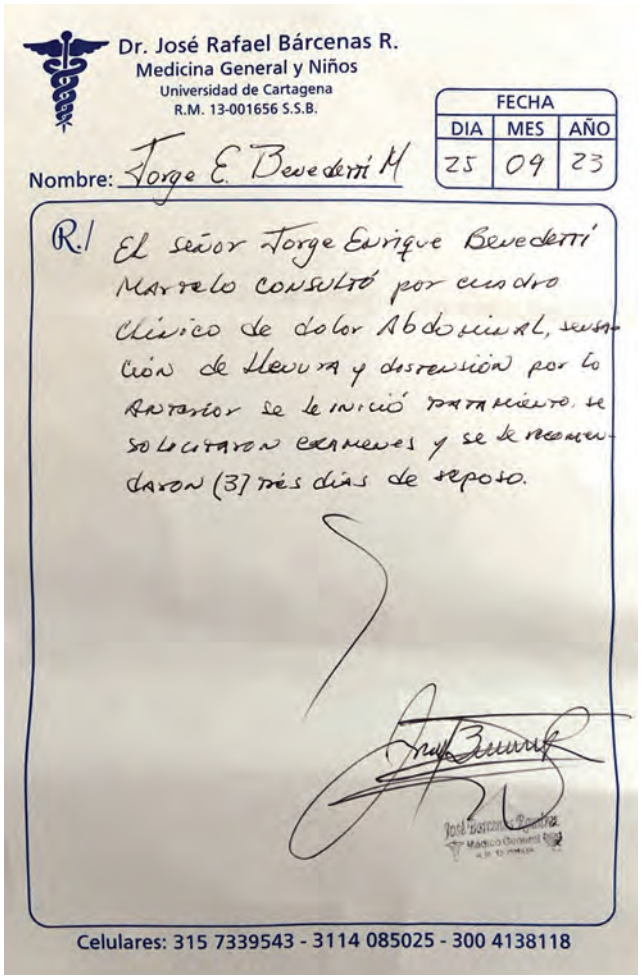 Dr. José Rafael Bárcenas R.
Medicina General y Niños
Universidad de Cartagena
R.M. 13-001656 S.S.B.
FECHA
DIA MES AÑO
25 09 23
Nombre: Jorge E. Benedetti M
R./ El señor Jorge Enrique Benedetti
Martelo consultó por cuadro
clínico de dolor Abdominal, sensa-
ción de llenura y distensión por lo
Anterior se le inició tratamiento. se
solicitaron exámenes y se le recomen-
daron (3) tres días de reposo.
José Bárcenas Ramírez
Médico General
Celulares: 315 7339543 - 3114 085025 - 300 4138118